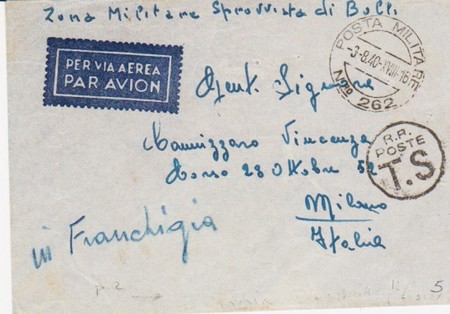 Zona Militare Sprovvista di Bolli
PER VIA AEREA
PAR AVION
POSTA MILITARE
-3-8.40-XVIII-16
Nro 262
Gent. Signora
Cannizzaro Vincenza
Corso 28 Ottobre 52
Milano
Italia
R.R.
POSTE
T.S
in Franchigia
p. 2
5